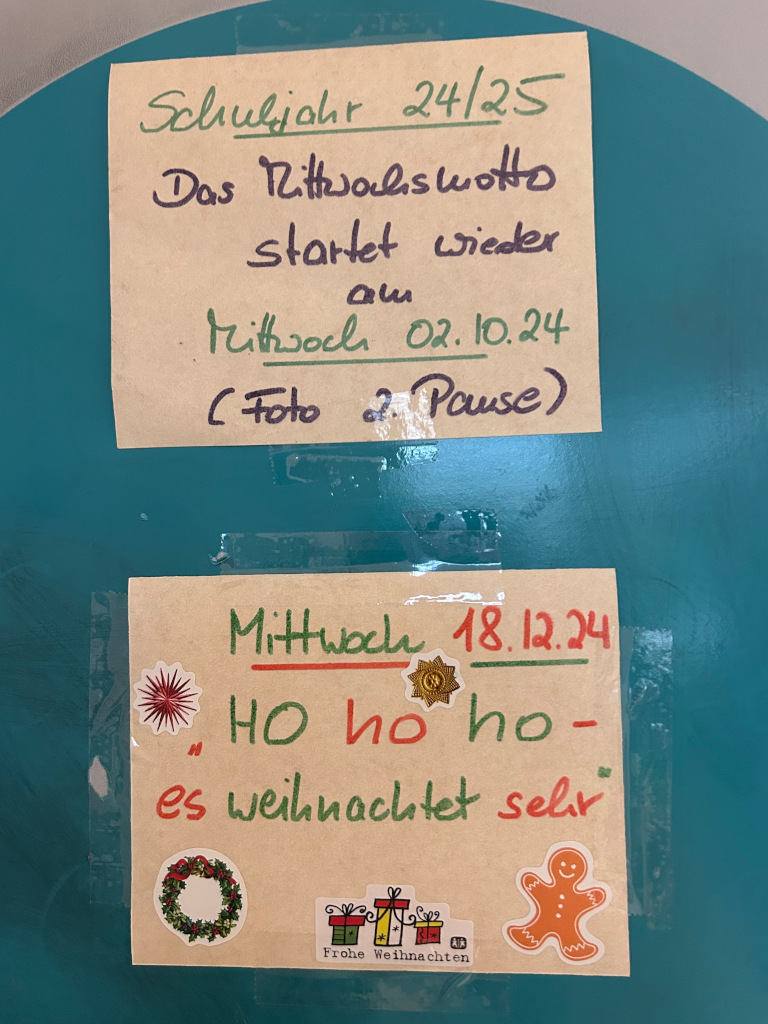 Schuljahr 24/25
Das Mittwochsmotto
startet wieder
am
Mittwoch 02.10.24
(Foto 2. Pause)
Mittwoch 18.12.24
„HO ho ho -
es weihnachtet sehr"
Frohe Weihnachten